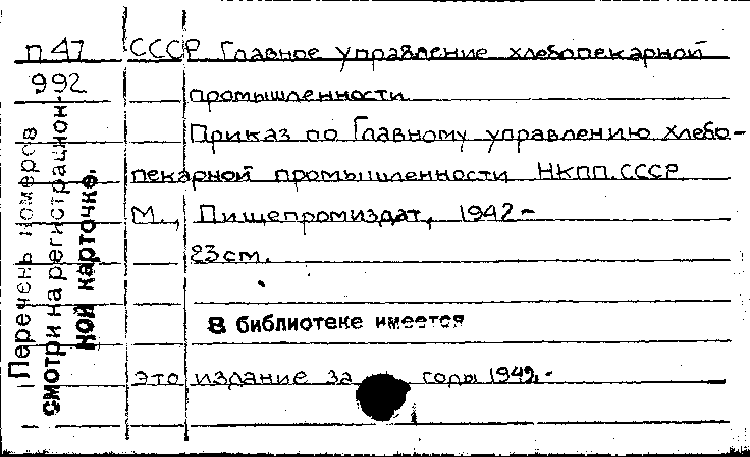 П 47
992
СССР Главное управление хлебопекарной
промышленности
Приказ по Главному управлению хлебо-
пекарной промышленности НКПП.СССР
М., Пищепромиздат, 1942-
23 см.
В библиотеке имеется
это издание за годы 1942,-
Перечень номеров
смотри на регистрацион-
ной карточке.